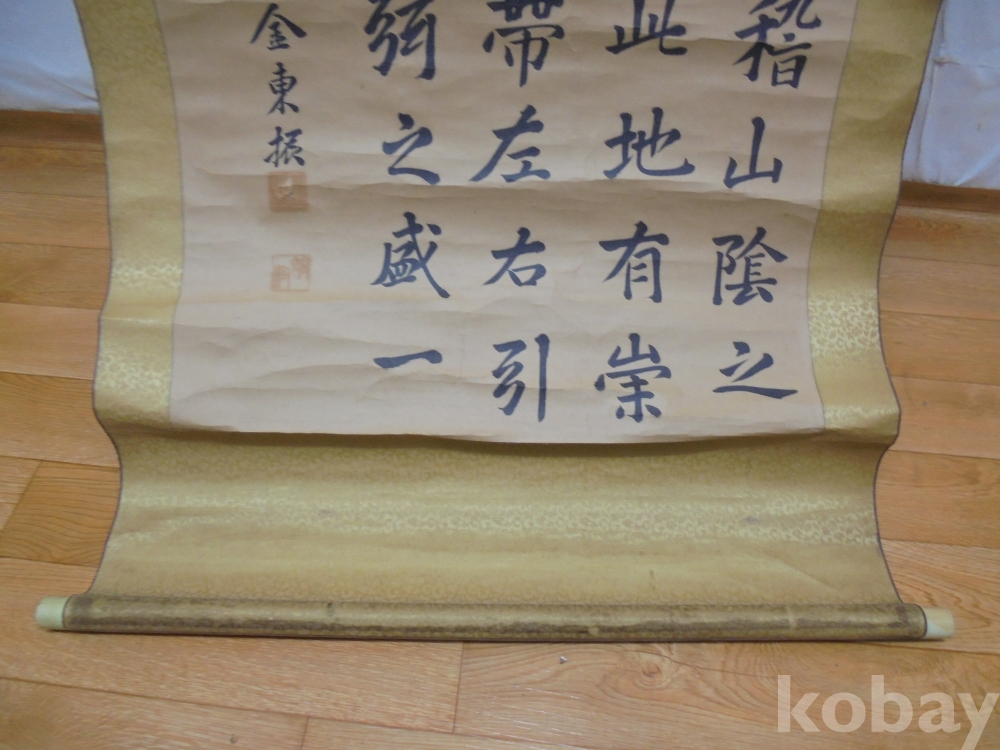 稽山陰之
此地有崇
帶左右引
弦之盛一
金東振
kobay